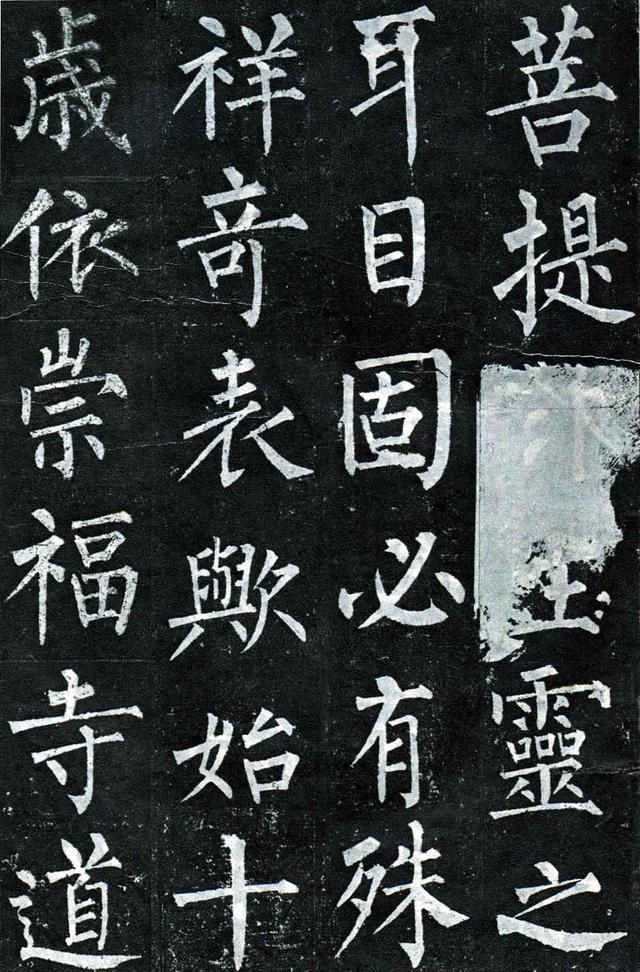 菩提生靈之
耳目固必有殊
祥竒表歟始十
歳依崇福寺道